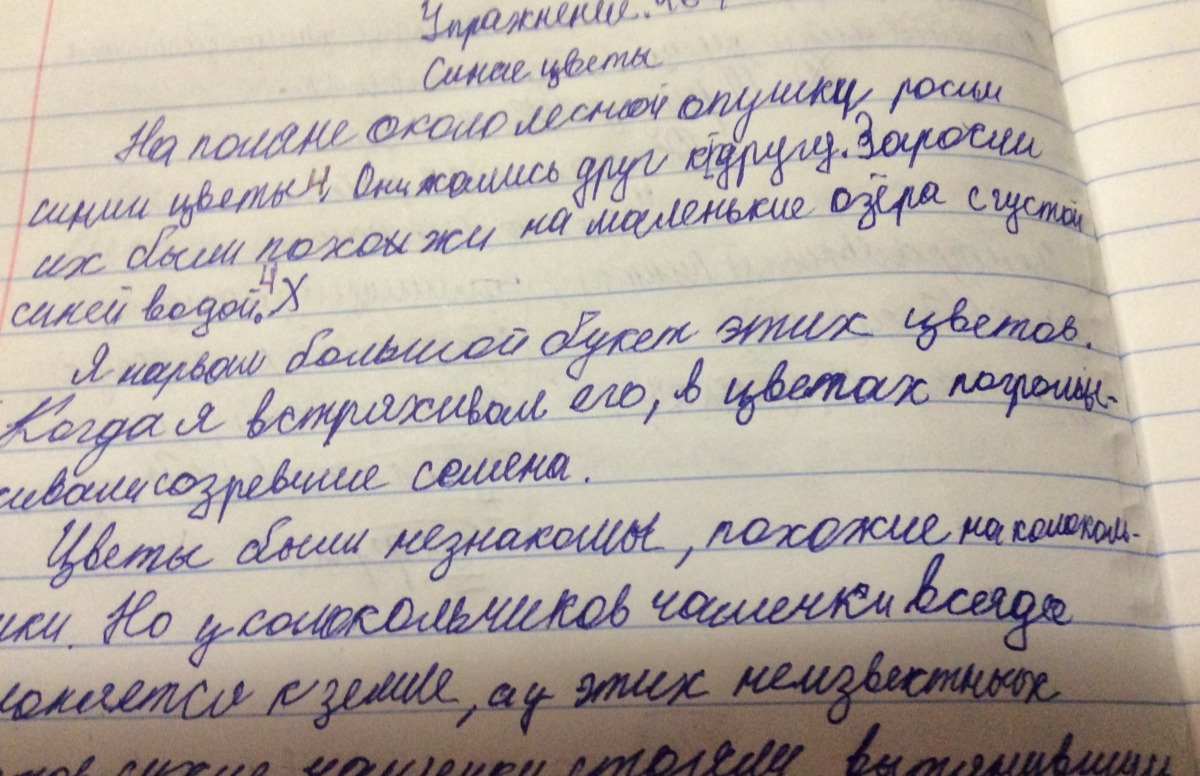 Упражнение.
Синие цветы
На поляне около лесной опушки росли
синии цветы 4. Они жались друг к другу. Заросли
их были похожи на маленькие озёра с густой
синей водой. 4 X
Я нарвал большой букет этих цветов.
Когда я встряхивал его, в цветах погромы-
сивали созревшие семена.
Цветы были незнакомы, похожие на колоколь-
ики. Но у колокольчиков чашечки всегда
лоняется к земле, а у этих неизвектных
сухие чашечки стояли вытянувшии